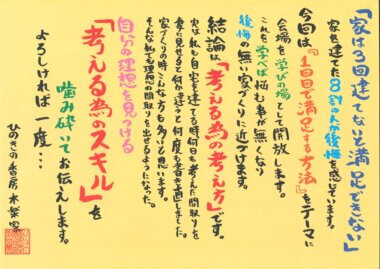 「家は3回建てないと満足できない」
家を建てた8割の人が後悔を感じています。
今回は『1回目で満足する方法』をテーマに
会場を学びの場として開放します。
これを学べば悩む事が無くなり
後悔の無い家づくりに近づけます。
結論は「考える為の考え方」です。
実は私も自宅を建てる時何日も考えた間取りを
妻に見せると何か違うと何度も書き直しました。
家づくりの時こんな方も多いと思います。
そんな私でも理想の間取りも出せるようになった。
自分の理想を見つける
「考える為のスキル」を
噛み砕いてお伝えします。
よろしければ一度…
ひのきの香房 木楽家